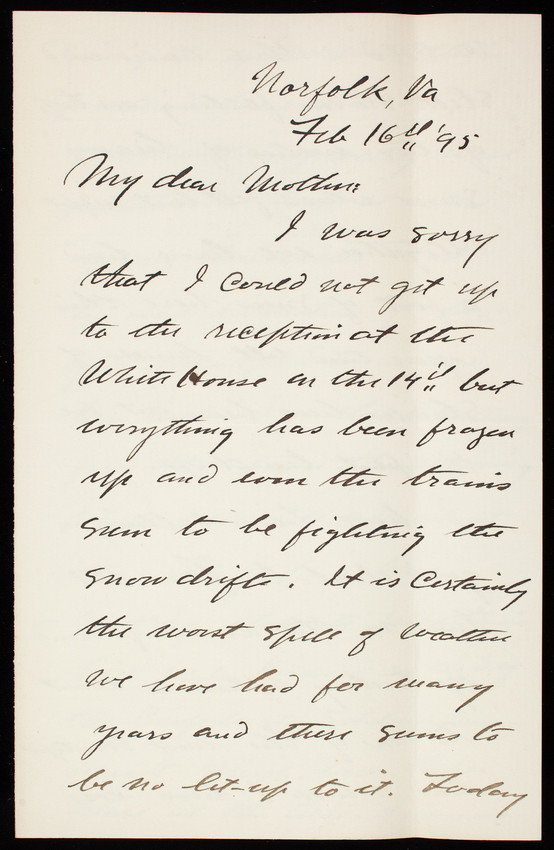 Norfolk, Va
Feb 16th '95
My dear Mother:
I was sorry
that I could not get up
to the reception at the
White House on the 14th but
everything has been frozen
up and even the trains
seem to be fighting the
snow drifts. It is certainly
the worst spell of weather
we have had for many
years and there seems to
be no let-up to it. Today